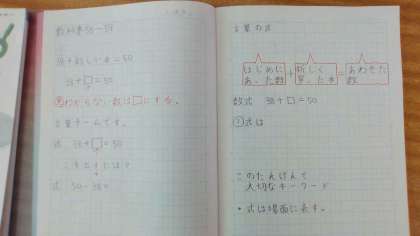 教科書58〜59
38+新しい本=50
38+□=50
わからない数は□にする。
言葉チームです。
式 38+□=50
式 50-38=
言葉の式
はじめにあった数+新しく買った本=あわせた数
数式 38+□=50
式は
このたんげんで
大切なキーワード
・式は場面に表す。